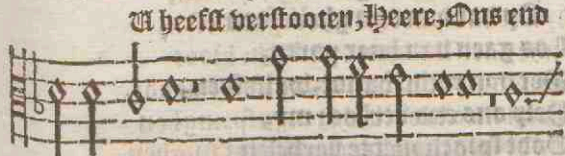 U heefſt verſtooten, Heere, Ons end